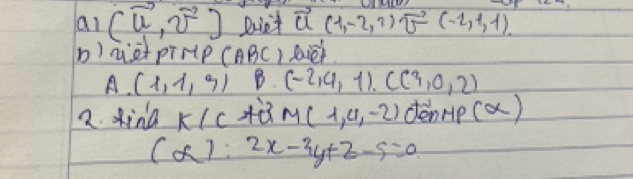 a) [u⃗, v⃗] biết u⃗ (1,-2,1) v⃗ (-1,1,1).
b) viết PTMP (ABC) biết
A.(1,1,3) B.(-2,4,1). C(3,0,2)
2. tính K/C từ M(1,4,-2) đến MP(α)
(α): 2x-3y+z-5=0